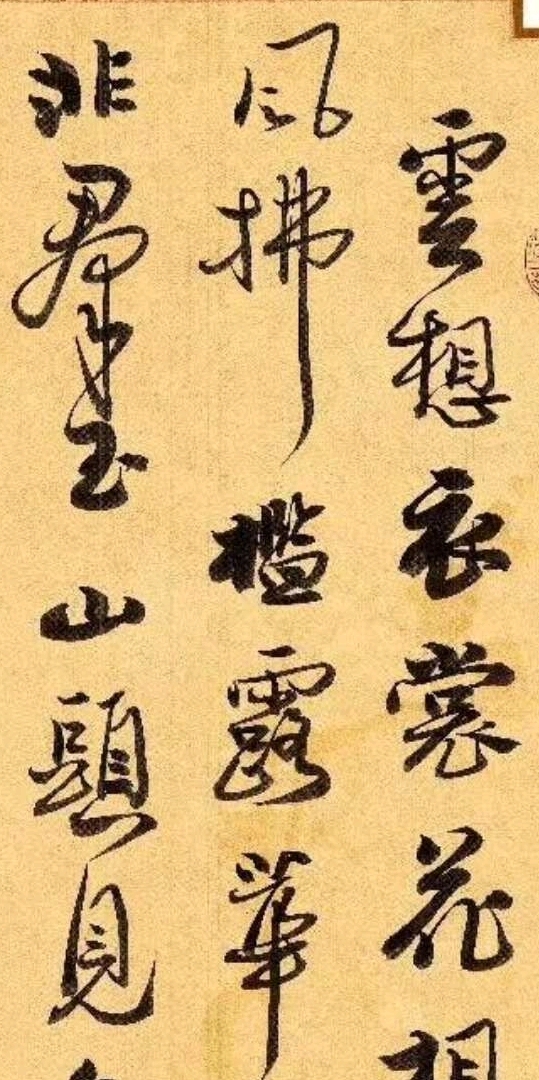 雲想衣裳花想
風拂檻露華
非羣玉山頭見